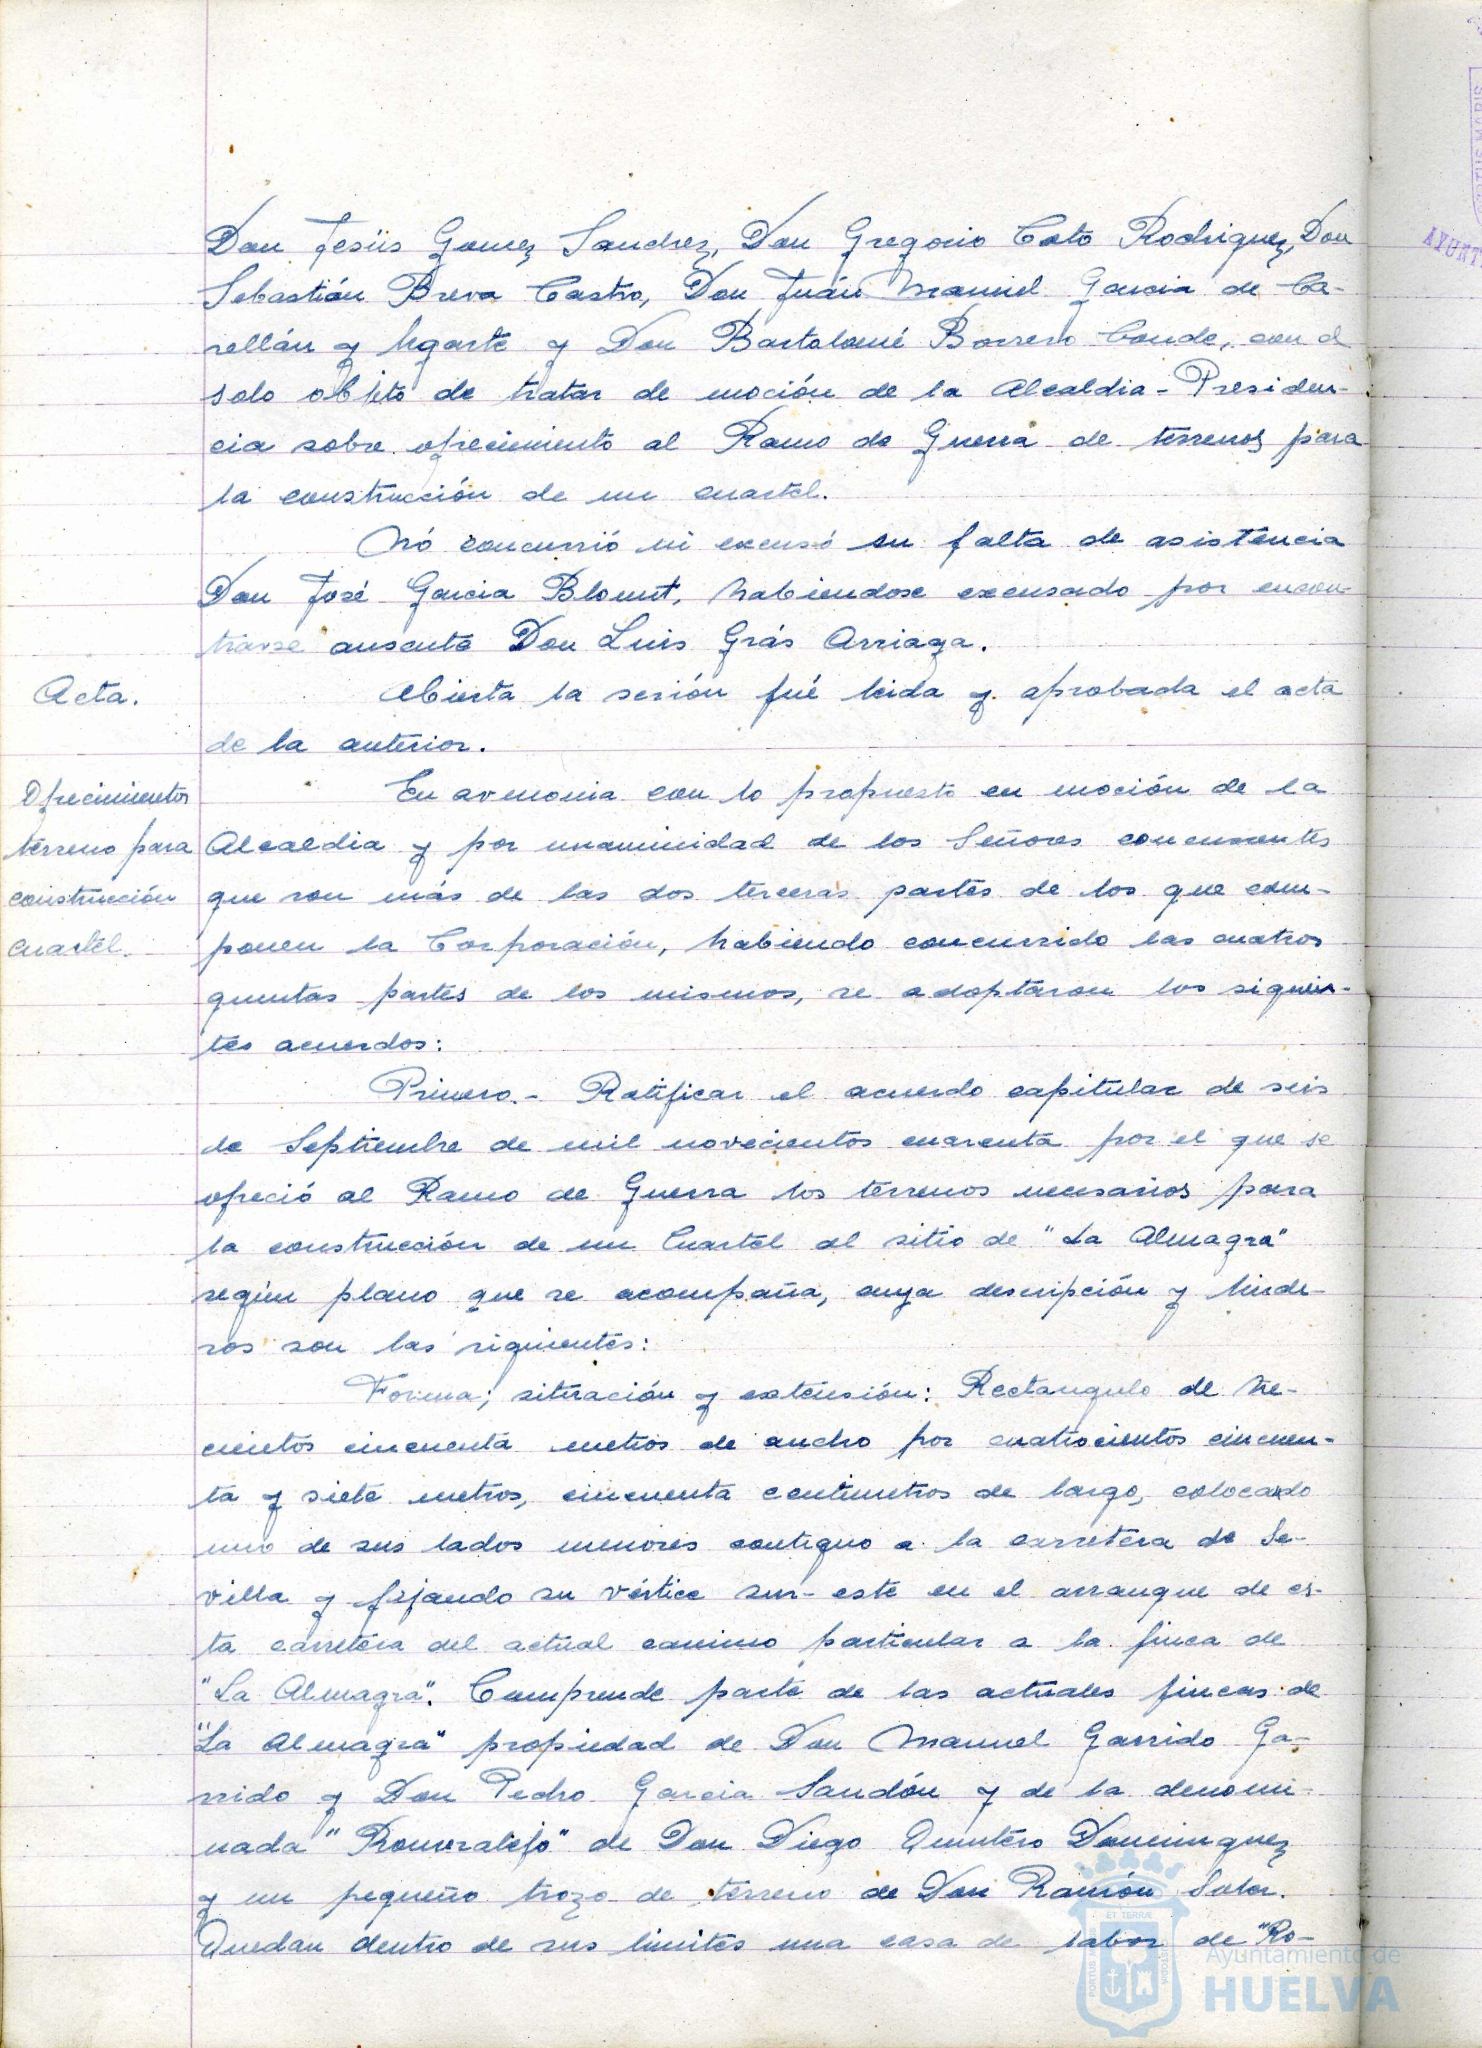 Don Jesús Gomez Sanchez, Don Gregorio Coto Rodriguez, Don
Sebastián Breva Castro, Don Juán Manuel Garcia de Ca-
rellán y Ugarte y Don Bartolomé Borrero Conde, con el
solo objeto de tratar de moción de la Alcaldia-Presiden-
cia sobre ofrecimiento al Ramo de Guerra de terrenos para
la construcción de un cuartel.
Nó concurrió ni excusó su falta de asistencia
Don José Garcia Blount, habiendose excusado por encon-
trarse ausente Don Luis Grás Arriaza.
Acta.
Abierta la sesión fué leida y aprobada el acta
de la anterior.
Ofrecimientos
terreno para
construcción
cuartel.
En armonia con lo propuesto en moción de la
Alcaldia y por unanimidad de los Señores concurrentes
que son más de las dos terceras partes de los que com-
ponen la Corporación, habiendo concurrido las cuatros
quintas partes de los mismos, se adoptaron los siguien-
tes acuerdos:
Primero.- Ratificar el acuerdo capitular de seis
de Septiembre de mil novecientos cuarenta por el que se
ofreció al Ramo de Guerra los terrenos necesarios para
la construcción de un Cuartel al sitio de "La Almagra"
según plano que se acompaña, cuya descripción y linde-
ros son las siguientes:
Forma; situación y extensión: Rectangulo de tre-
cientos cincuenta metros de ancho por cuatrocientos cincuen-
ta y siete metros, cincuenta centimetros de largo, colocando
uno de sus lados menores contiguo a la carretera de Se-
villa y fijando su vértice sur-este en el arranque de es-
ta carretera del actual camino particular a la finca de
"La Almagra". Comprende parte de las actuales fincas de
"La Almagra" propiedad de Don Manuel Garrido Ga-
rrido y Don Pedro Garcia Sandón y de la denomi-
nada "Romeralejo" de Don Diego Quintero Dominguez
y un pequeño trozo de terreno de Don Ramón Soler.
Quedan dentro de sus limites una casa de labor de "Ro-
Ayuntamiento de
HUELVA